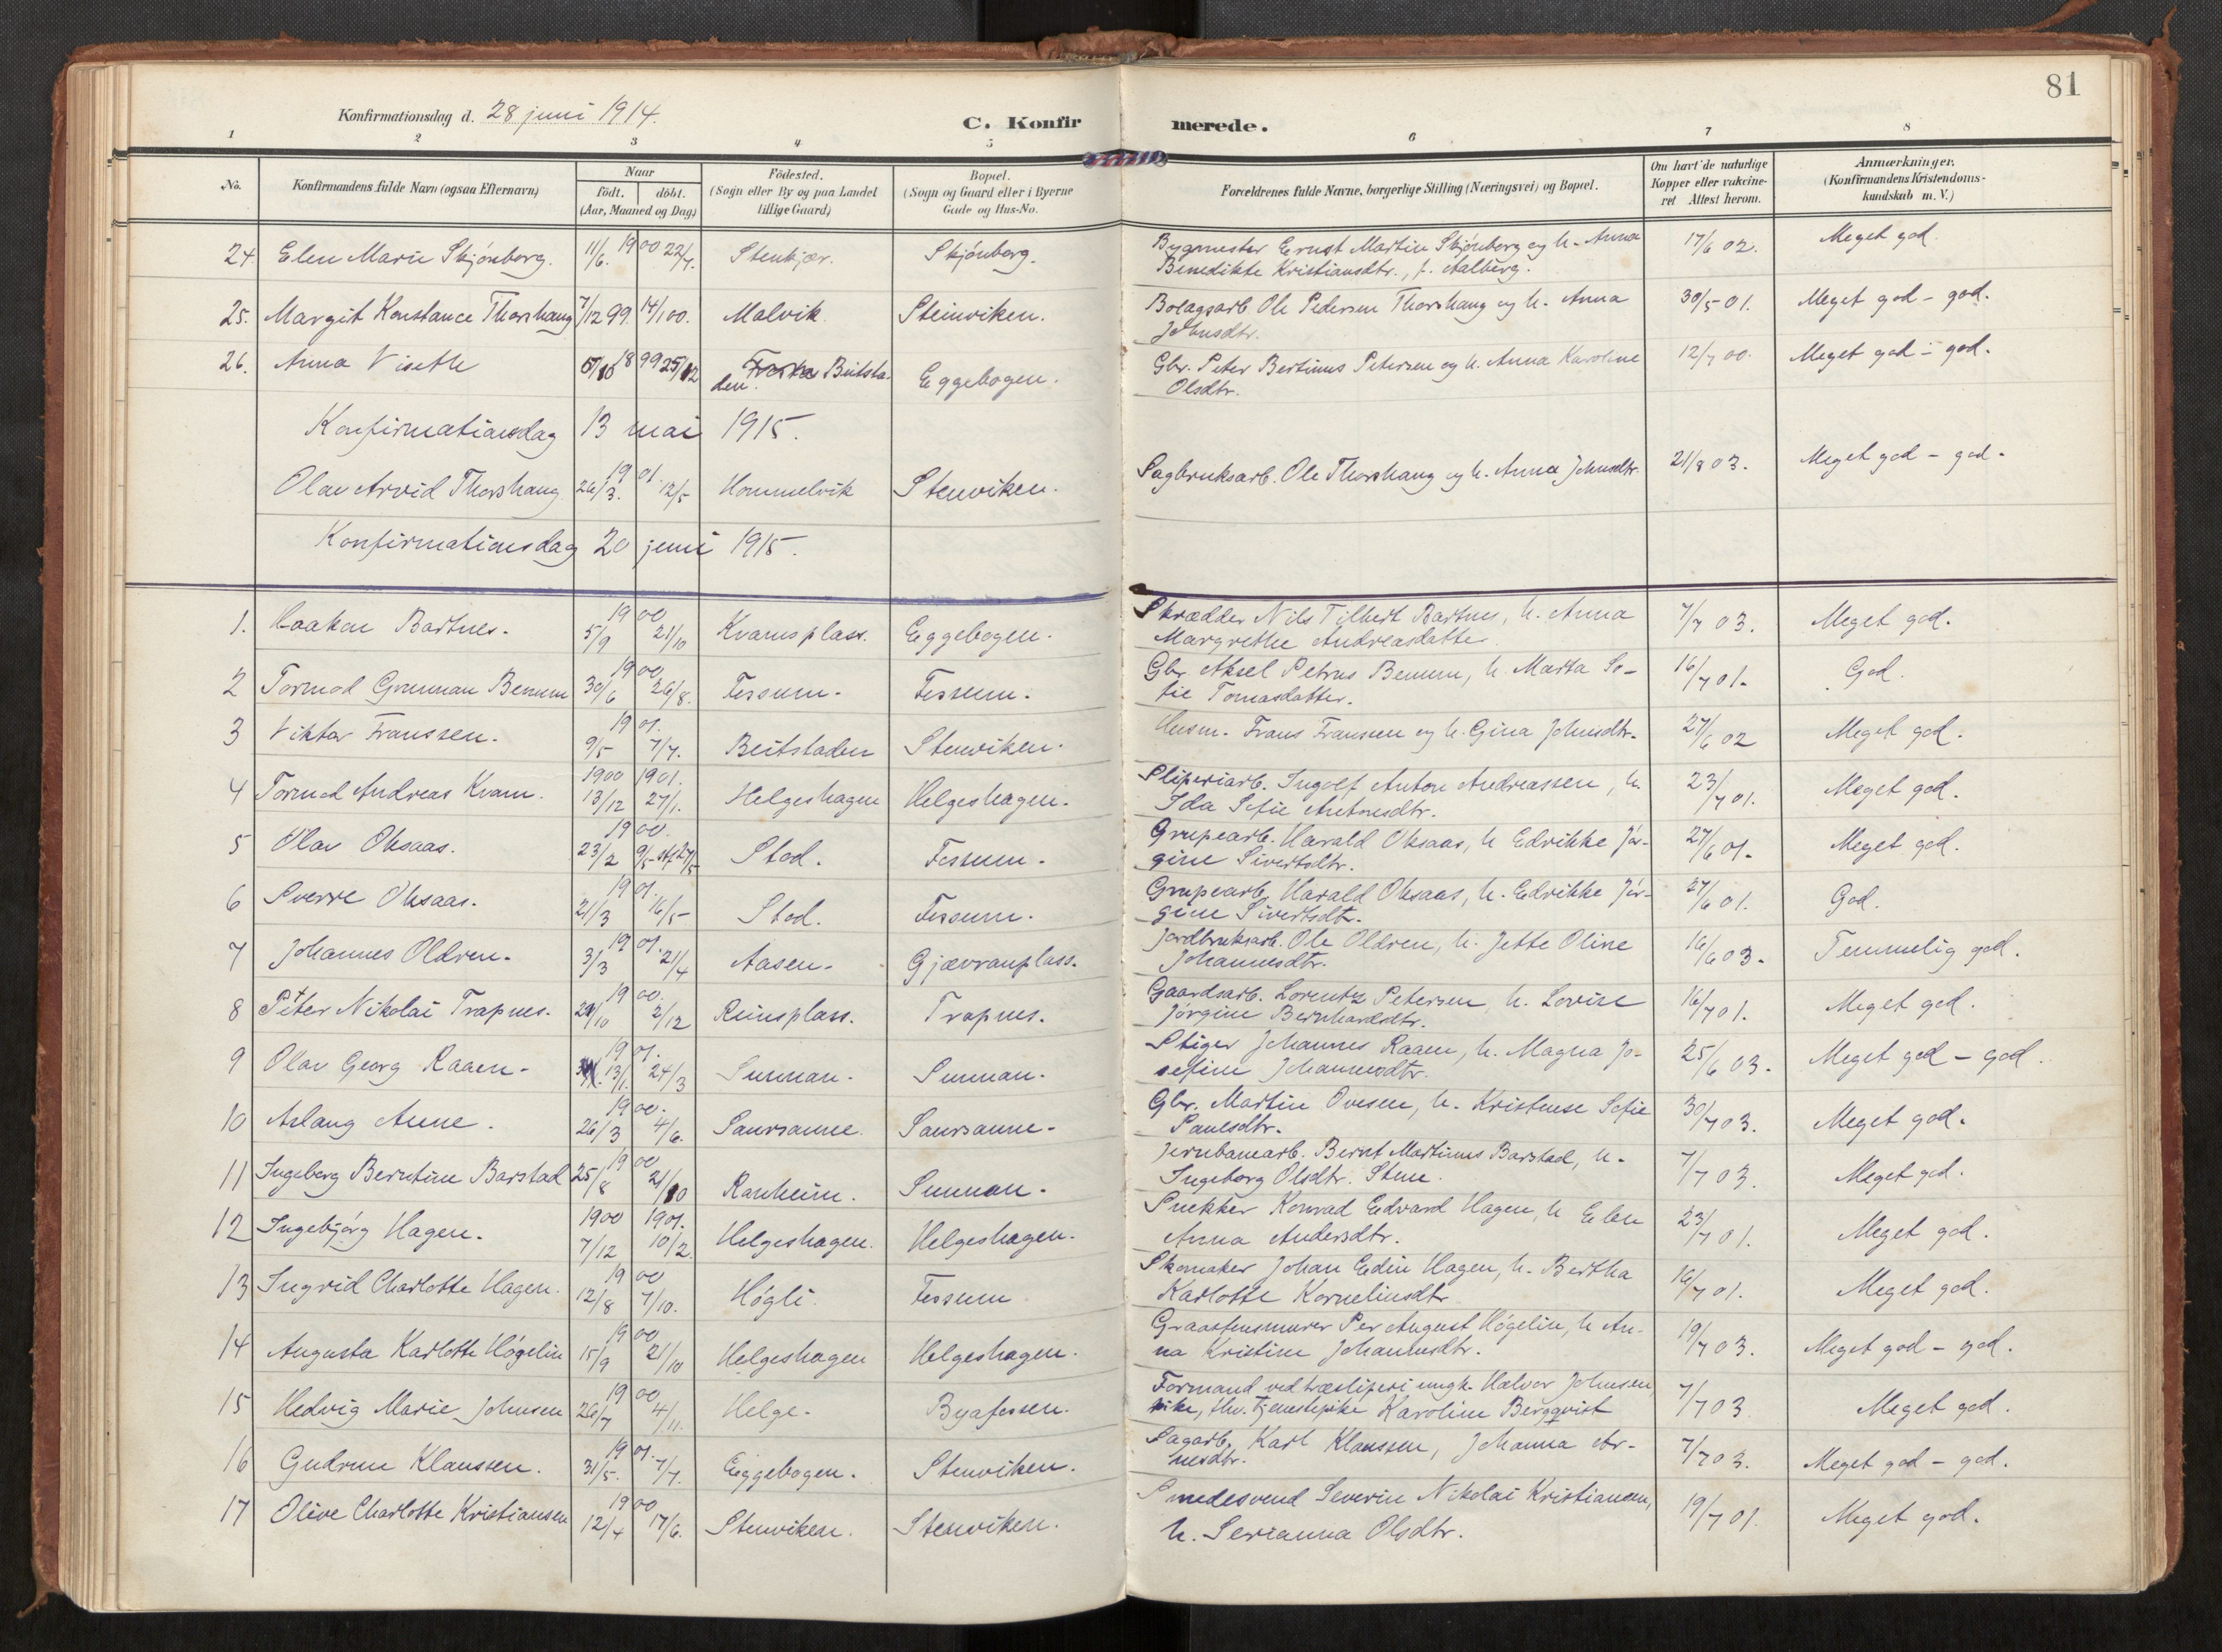 81
Konfirmationsdag d. 28 juni 1914.
C. Konfirmerede.
1 2 3 4 5 6 7 8
No.
Konfirmandens fulde Navn (ogsaa Efternavn)
Naar
født. døbt.
(Aar, Maaned og Dag)
Fødested.
(Sogn eller By og paa Landet
tillige Gaard)
Bopæl.
(Sogn og Gaard eller i Byerne
Gade og Hus-No.
Forældrenes fulde Navne, borgerlige Stilling (Næringsvei) og Bopæl.
Om havt de naturlige
Kopper eller vakcine-
ret Attest herom.
Anmærkninger.
(Konfirmandens Kristendoms-
kundskab m. V.)
24. Elen Marie Skjønberg. 11/6. 1900 22/7. Stenkjær. Skjønberg. Bygmester Ernst Martin Skjønberg og h. Anna 17/6 02. Meget god.
Benedikte Kristiansdtr., f. Aalberg.
25. Margit Konstance Thorshaug 7/12 99. 14/1 00. Malvik. Steinviken. Bolagsarb. Ole Pedersen Thorshaug og h. Anna 30/5 01. Meget god - god.
Johnsdtr.
26. Anna Viseth 1899 25/12 Beitsta- Eggebogen. Gbr. Peter Bertinus Petersen og h. Anna Karoline 12/7 00. Meget god - god.
den. Olsdtr.
Konfirmationsdag 13 mai 1915.
Olav Arvid Thorshaug 26/3. 1901. 12/5 Hommelvik Stenviken. Sagbruksarb. Ole Thorshaug og h. Anna Johnsdtr. 21/8 03. Meget god - god.
Konfirmationsdag 20 juni 1915.
1. Haakon Bartnes. 5/9 1900 21/10 Kvamsplass. Eggebogen. Skrædder Nils Tilbert Bartnes, h. Anna 7/7 03. Meget god.
Margrethe Andreasdatter.
2 Tormod Gunnan Benum 30/6 1900 26/8. Fossum. Fossum. Gbr. Aksel Petrus Benum, h. Marta So- 16/7 01. God.
fie Tomasdatter.
3 Viktor Franssen. 9/5 1901. 7/7. Beitstaden Stenviken. Husm. Frans Franssen og h. Gina Johnsdtr. 27/6 02 Meget god.
4 Tormod Andreas Kvam. 1900 13/12 1901. 27/1. Helgeshagen Helgeshagen. Sliperiarb. Ingolf Anton Andreassen, h. 23/7 01. Meget god.
Ida Sofie Antonsdtr.
5 Olav Oksaas. 23/2 1900. 9/5 Stod. Fossum. Grupearb. Harald Oksaas, h Edrikke Jør- 27/6 01. Meget god.
gine Sivertsdtr.
6 Sverre Oksaas. 21/3 1901. 16/5 Stod. Fossum. Grupearb. Harald Oksaas, h. Edrikke Jør- 27/6 01. God.
gine Sivertsdtr.
7 Johannes Oldren. 3/3 1901. 21/4 Aasen. Gjævranplass. Jordbruksarb. Ole Oldren, h. Jette Oline 16/6 03. Temmelig god.
Johannesdtr.
8 Peter Nikolai Trapnes. 28/10 1900. 2/12 Reinsplass. Trapnes. Gaardsarb. Lorentz Petersen, h. Lovise 16/7 01. Meget god.
Jørgine Bernhardsdtr.
9 Olav Georg Raaen. 13/1. 1901. 24/3 Sunnan. Sunnan. Stiger Johannes Raaen, h. Magna Jo- 25/6 03. Meget god - god.
sefine Johannesdtr.
10 Aslaug Aune. 26/3 1900. 4/6. Saursaune. Saursaune. Gbr. Martin Ovesen, h. Kristense Sofie 30/7 03. Meget god.
Paulsdtr.
11 Ingeborg Berntine Barstad 25/8 1900 21/10 Ranheim. Sunnan. Jernbanearb. Bernt Martinus Barstad, h. 7/7 03. Meget god.
Ingeborg Olsdtr. Stene.
12 Ingebjørg Hagen. 1900 7/12 1901. 10/2. Helgeshagen. Helgeshagen. Snekker Konrad Edvard Hagen, h Elen 23/7 01. Meget god.
Anna Andersdtr.
13 Ingrid Charlotte Hagen. 12/8 1900 7/10. Høgli. Fossum Skomaker Johan Edin Hagen, h. Bertha 16/7 01. Meget god.
Karlotte Korneliusdtr
14 Augusta Karlotte Høgelin 15/9 1900 21/10 Helgeshagen Helgeshagen. Graastensmurer Per August Høgelin, h An- 19/7 03. Meget god - god.
na Kristine Johannesdtr.
15 Hedvig Marie Johnsen 26/7 1900 4/11. Helge. Byafossen. Formand ved træsliperi ungk. Halvor Johnsen, 7/7 03 Meget god.
tjenestepike Karoline Bergqvist
16 Gudrun Klaussen. 31/5. 1901. 7/7. Eggebogen. Stenviken. Sagarb. Karl Klaussen, Johanna Ar- 7/7 03. Meget god - god.
nesdtr.
17 Olive Charlotte Kristiansen 12/4 1900 17/6. Stenviken. Stenviken. Smedesvend Severin Nikolai Kristiansen, 19/7 01. Meget god.
h. Serianna Olsdtr.